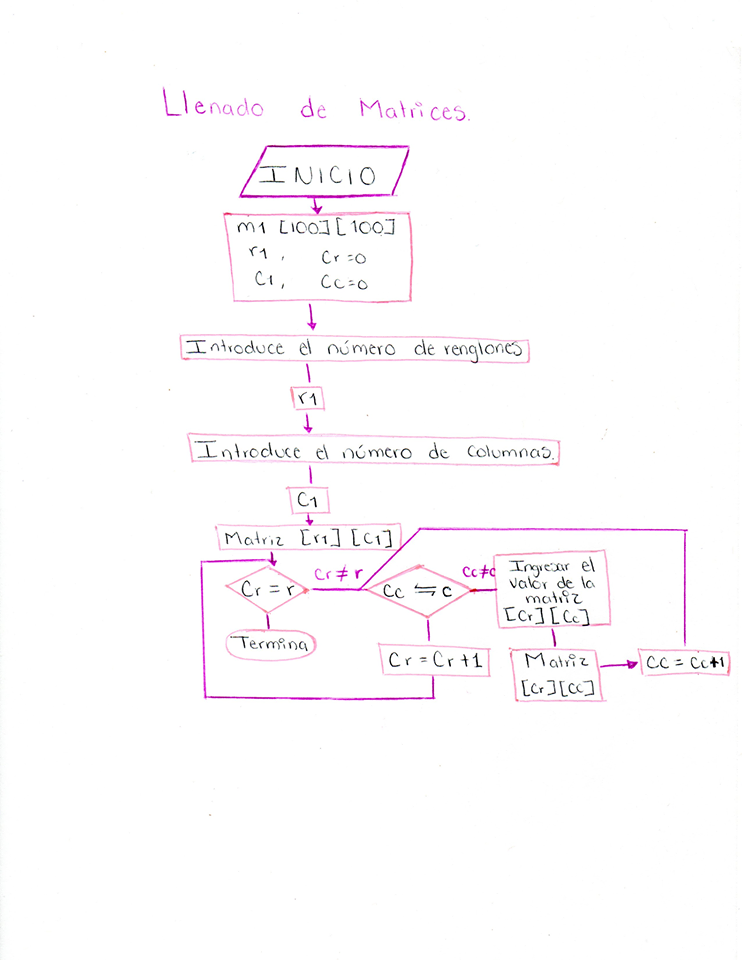 Llenado de Matrices.
INICIO
m1 [100][100]
r1, Cr=0
C1, Cc=0
Introduce el número de renglones
r1
Introduce el número de columnas.
C1
Matriz [r1] [C1]
Cr = r
Cr ≠ r
Cc ⇋ c
Cc≠c
Ingresar el
valor de la
matriz
[Cr][Cc]
Termina
Cr = Cr+1
Matriz
[Cr][Cc]
CC = Cc+1